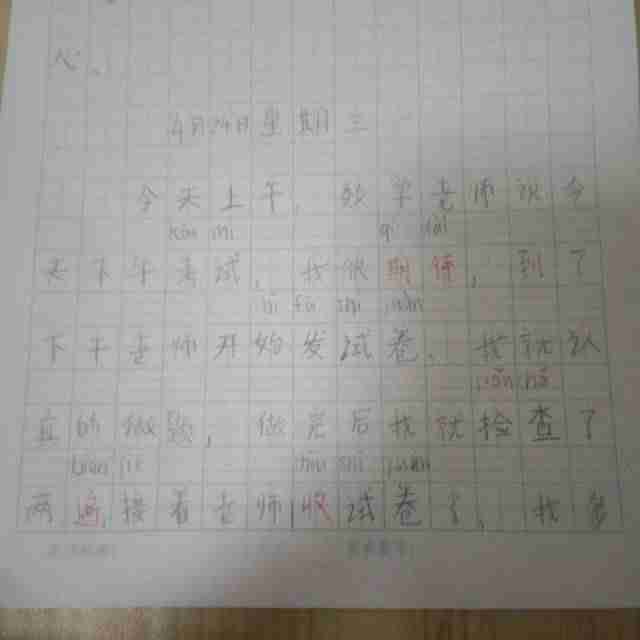 心。
4月24日星期三
今天上午,数学老师说今
kǎo shì
天下午考试,我很期待,到了
下午老师开始发试卷,我就认
真的做题,做完后我就检查了
biàn jiē shōu shì juàn
两遍,接着老师收试卷了,我多